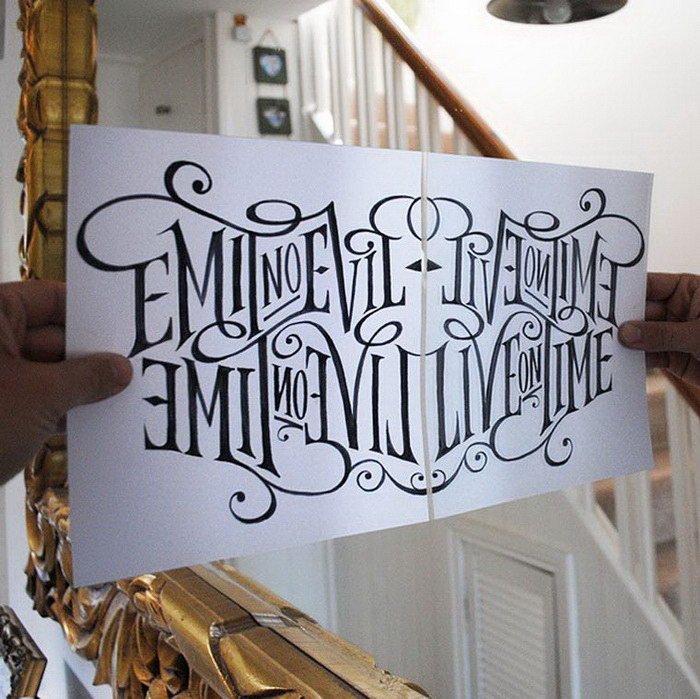 EMIT NO EVIL LIVE ON TIME
EMIT NO EVIL LIVE ON TIME